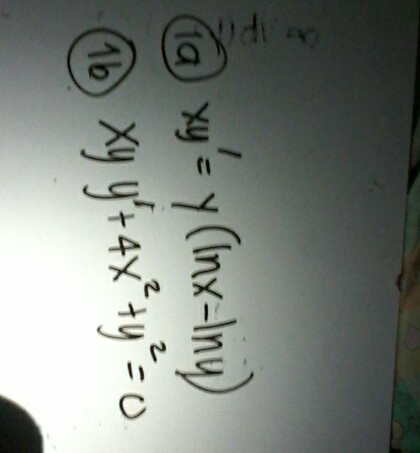 1a xy' = y (lnx - lny)
1b xy y' + 4x² + y² = 0